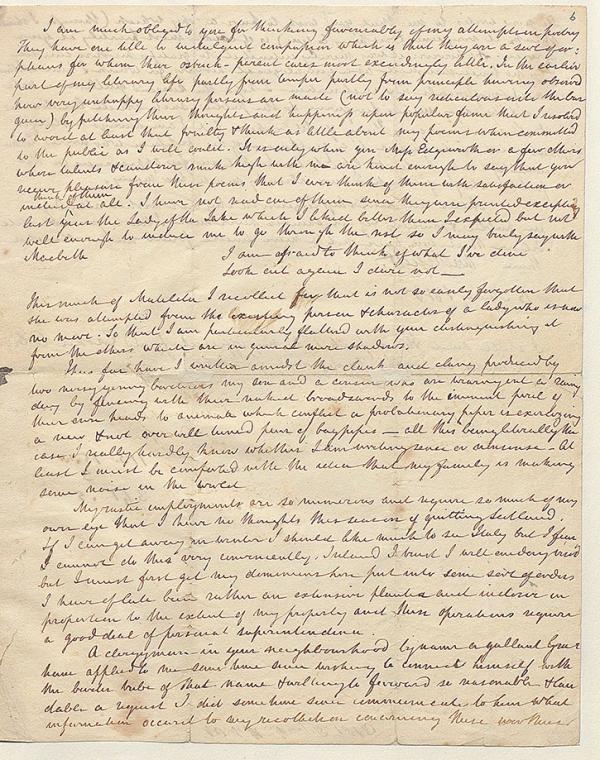 6
I am much obliged to you for thinking favourably of my attempts in poetry
They have one title to indulgent compassion which is that they are a sort of or=
phans for whom their ostrich-parent cares most exceedingly little. In the earlier
part of my literary life partly from temper partly from principle having observd
how very unhappy literary persons are made (not to say ridiculous into the bar
gain) by pitching their thoughts and happiness upon popular fame that I resolved
to avoid at least that frailty & think as little about my poems when committed
to the public as I well could. It is only when you Miss Edgeworth or a few others
whose talents & candour rank high with me are kind enough to say that you
receive pleasure from these poems that I ever think of them with satisfaction or
indeed think of them at all. I have not read one of them since they were printed excepting
last year the Lady of the Lake which I liked better than I expected but not
well enough to induce me to go through the rest so I may truly say with
Macbeth
I am afraid to think of what I've done
Look on't again I dare not—
This much of Matilda I recollect for that is not so easily forgotten that
she was attempted from the existing person & character of a lady who is now
no more. So that I am particularly flatterd with your distinguishing it
from the others which are in general mere shadows.
Thus far have I written amidst the clank and clang produced by
two noisy young brothers my son and a cousin who are wearing out a rainy
day by fencing with their naked broadswords to the imminent peril of
their own heads to animate which conflict a probationary piper is exercising
a new & not over well tuned pair of bagpipes — all this being literally the
case I really hardly know whether I am writing sense or nonsense — At
least I must be comforted with the idea that my family is making
some noise in the world
My rustic employments are so numerous and require so much of my
own eye that I have no thoughts this season of quitting Scotland.
If I can get away in winter I should like much to see Italy but I fear
I cannot do this very conveniently. Ireland I trust I will one day visit
but I must first get my dominions here put into some sort of order
I have of late been rather an extensive planter and incloser in
proportion to the extent of my property and these operations require
a good deal of personal superintendence.
A clergyman in your neighbourhood by name a gallant Græme
have applied to me some time since wishing to connect himself with
the border tribe of that name & willing to forward so reasonable & lau
dable a request I did some time since communicate to him what
information occurd to my recollection concerning these